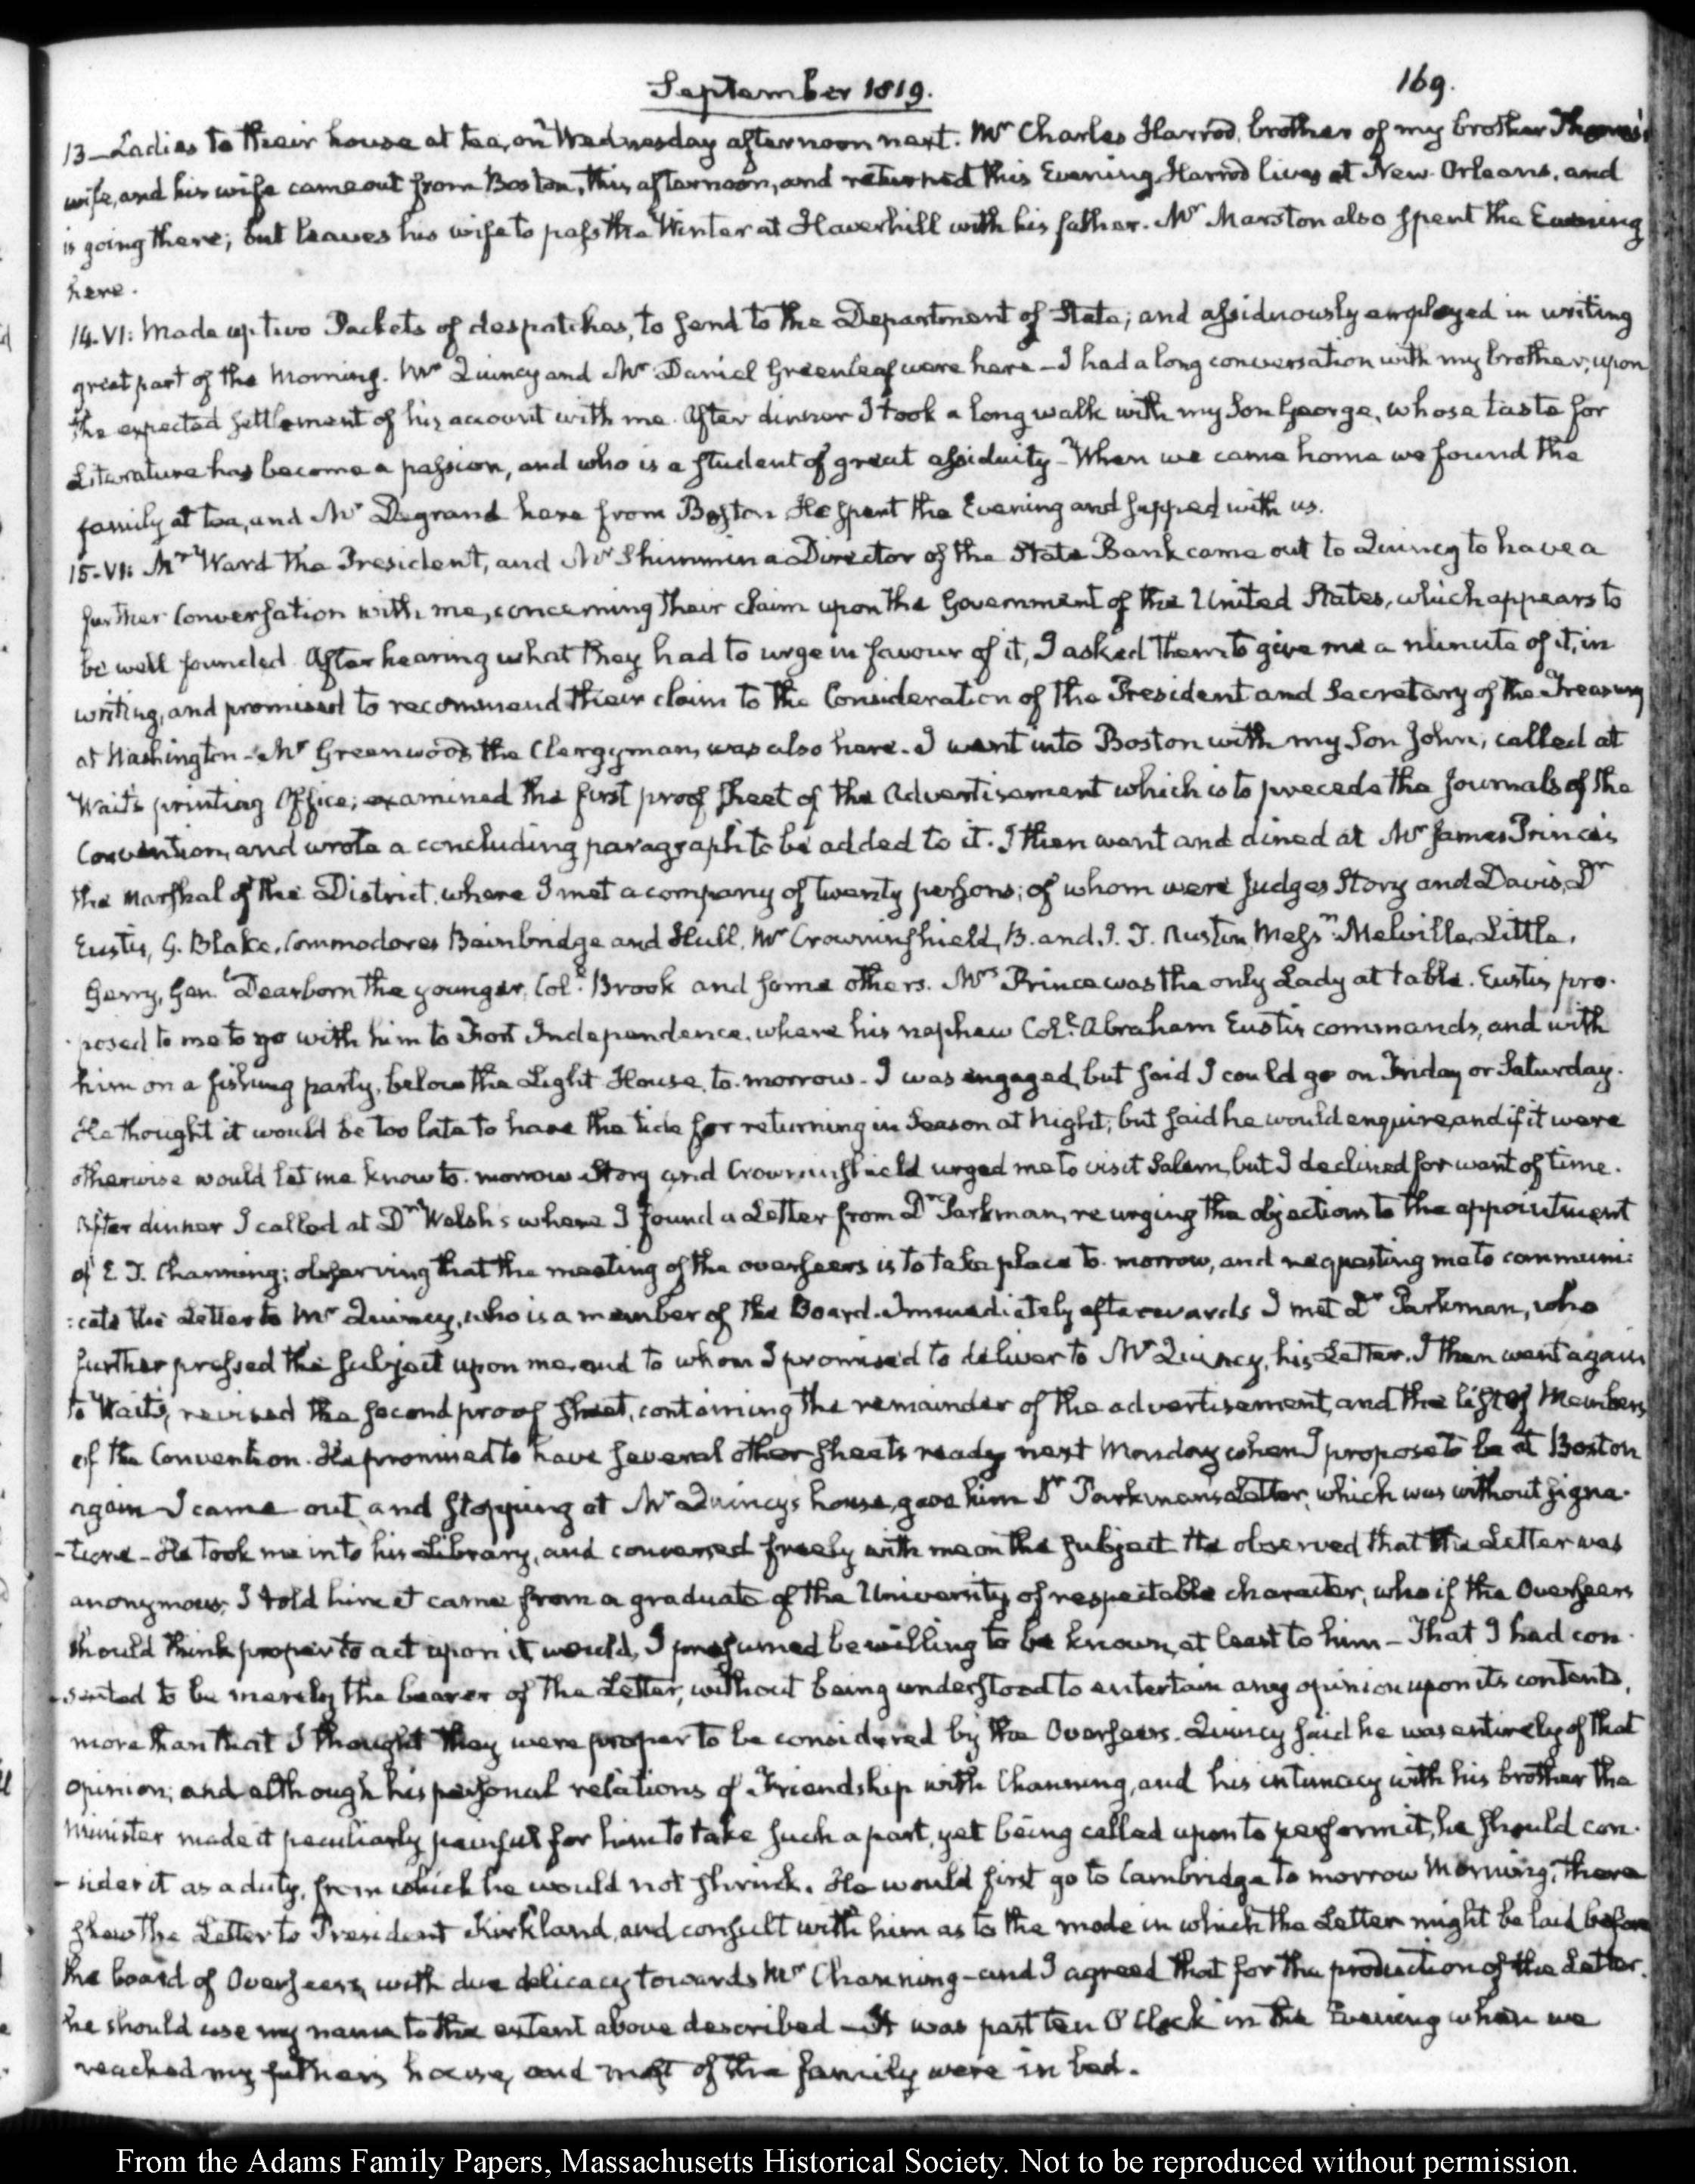 September 1819.
169.
13_Ladies to their house at tea, on Wednesday afternoon next. Mr Charles Harrod, brother of my brother Thomas's
wife, and his wife came out from Boston, this afternoon, and returned this Evening Harrod lives at New Orleans, and
is going there; but leaves his wife to pass the Winter at Haverhill with his father. Mr Marston also spent the Evening
here.
14. VI: Made up two Packets of despatches, to send to the Department of State; and assiduously employed in writing
great part of the Morning. Mr Quincy and Mr Daniel Greenleaf were here – I had a long conversation with my brother, upon
the expected settlement of his account with me. After dinner I took a long walk with my Son George, whose taste for
Literature has become a passion, and who is a student of great assiduity – When we came home we found the
family at tea, and Mr Degrand here from Boston He spent the Evening and supped with us.
15. VI: Mr Ward the President, and Mr Shimmin a Director of the State Bank came out to Quincy to have a
further Conversation with me, concerning their claim upon the Government of the United States, which appears to
be well founded. After hearing what they had to urge in favour of it, I asked them to give me a minute of it, in
writing, and promised to recommend their claim to the Consideration of the President and Secretary of the Treasury
at Washington – Mr Greenwood, the Clergyman, was also here. I went into Boston with my Son John, called at
Wait's printing Office; examined the first proof sheet of the Advertisement which is to precede the Journals of the
Convention, and wrote a concluding paragraph to be added to it. I then went and dined at Mr James Prince's
the Marshal of the District, where I met a company of twenty persons; of whom were Judges Story and Davis, Dr
Eustis, G. Blake, Commodores Bainbridge and Hull, Mr Crowninshield, B. and J. T. Austin Messrs Melville, Little,
Gerry, Genl Dearborn the younger, Coll Brook and some others. Mrs Prince was the only Lady at table. Eustis pro-
posed to me to go with him to Fort Independence, where his nephew Coll Abraham Eustis commands, and with
him on a fishing party, below the Light House, to-morrow. I was engaged, but said I could go on Friday or Saturday.
He thought it would be too late to have the tide for returning in Season at Night; but said he would enquire, and if it were
otherwise would let me know to-morrow Story and Crowninshield urged me to visit Salem, but I declined for want of time.
After dinner I called at Dr Welsh's where I found a Letter from Dr Parkman, re urging the objections to the appointment
of E T. Channing; observing that the meeting of the overseers is to take place to-morrow, and requesting me to communi:
:cate the Letter to Mr Quincy, who is a member of the Board. Immediately afterwards I met Dr Parkman, who
further pressed the subject upon me, and to whom I promised to deliver to Mr Quincy, his Letter. I then went again
to Wait's, revised the second proof sheet, containing the remainder of the advertisement, and the list of Members
of the Convention. He promised to have several other sheets ready next Monday when I propose to be at Boston
again I came out, and stopping at Mr Quincy's house, gave him Dr Parkman's Letter, which was without signa-
-ture – He took me into his Library, and conversed freely with me on the subject He observed that the Letter was
anonymous; I told him it came from a graduate of the University of respectable character, who if the Overseers
should think proper to act upon it, would, I presumed be willing to be known, at least to him – That I had con-
-sented to be merely the bearer of the Letter, without being understood to entertain any opinion upon its contents,
more than that I thought they were proper to be considered by the Overseers. Quincy said he was entirely of that
opinion; and although his personal relations of Friendship with Channing, and his intimacy with his brother the
Minister made it peculiarly painful for him to take such a part, yet being called upon to perform it, he should con-
-sider it as a duty, from which he would not shrink. He would first go to Cambridge to morrow Morning; there
shew the Letter to President Kirkland, and consult with him as to the mode in which the Letter might be laid before
the board of Overseers, with due delicacy towards Mr Channing – and I agreed that for the production of the Letter,
he should use my name to the extent above described – It was past ten O'Clock in the Evening when we
reached my father's house, and most of the family were in bed.
From the Adams Family Papers, Massachusetts Historical Society. Not to be reproduced without permission.